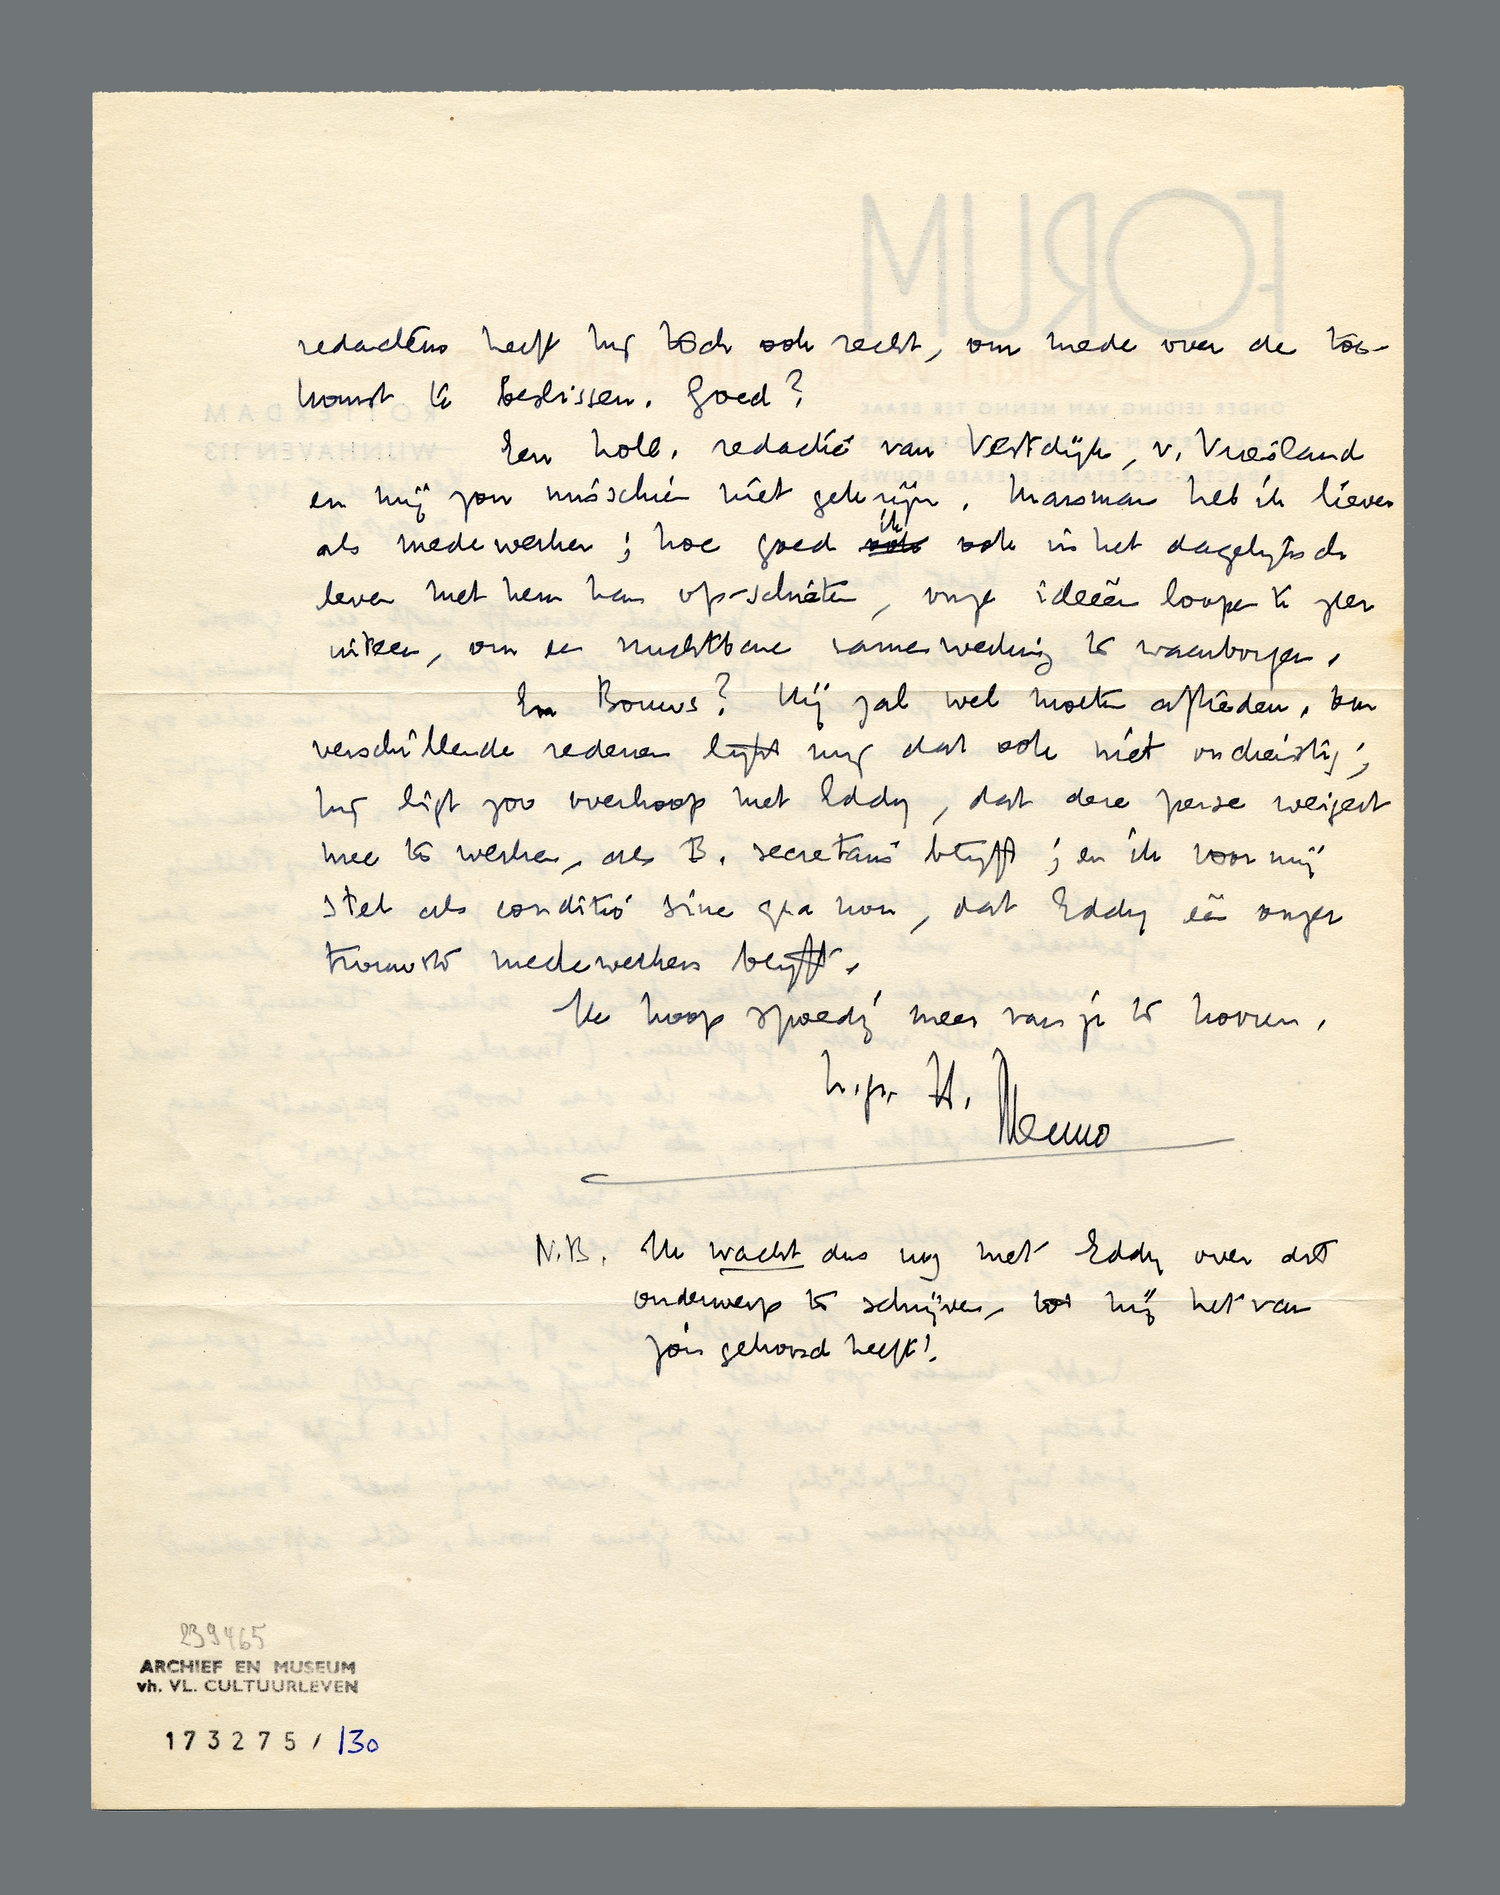 redacteur heeft hij toch ook recht, om mede over de toe-
komst te beslissen. Goed?
Een holl. redactie van Vestdijk, v. Vriesland
en mij zou misschien niet gek zijn. Marsman heb ik liever
als medewerker; hoe goed ik ook in het dagelijksch
leven met hem kan opschieten, onze ideeën loopen te zeer
uiteen, om een vruchtbare samenwerking te waarborgen.
En Bouws? Hij zal wel moeten aftreden. Om
verschillende redenen lijkt mij dat ook niet ondienstig;
hij ligt zoo overhoop met Eddy, dat deze perse weigert
mee te werken, als B. secretaris blijft; en ik voor mij
stel als conditio sine qua non, dat Eddy één onzer
trouwste medewerkers blijft.
Ik hoop spoedig meer van je te hooren.
h.gr. tt.
Menno
N.B. Ik wacht dus nog met Eddy over dit
onderwerp te schrijven, tot hij het van
jou gehoord heeft!
239465
ARCHIEF EN MUSEUM
vh. VL. CULTUURLEVEN
173275 / 130